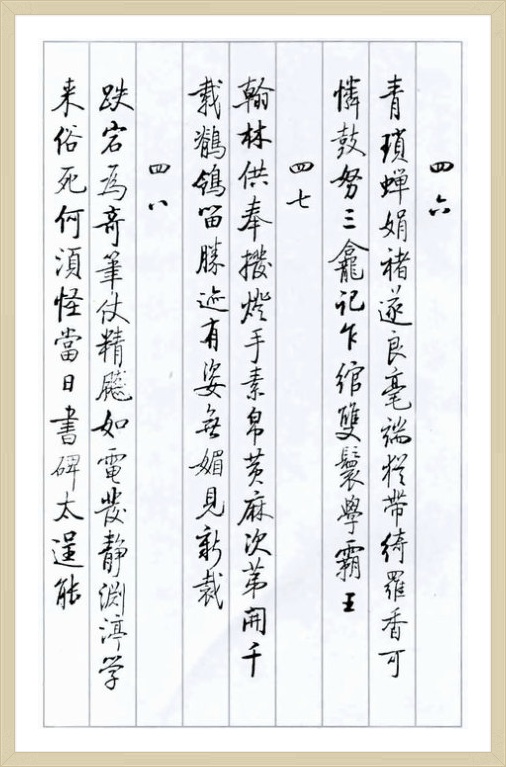 四六
青瑣蝉娟褚遂良毫端猶带绮羅香可
憐鼓努三龕记乍绾雙鬟學霸王
四七
翰林供奉撥燈手素帛黄麻次第開千
载鹡鸰留勝迹有姿無媚見新裁
四八
跌宕為奇筆仗精飚如電發静渊渟学
来俗死何須怪當日書碑太逞能